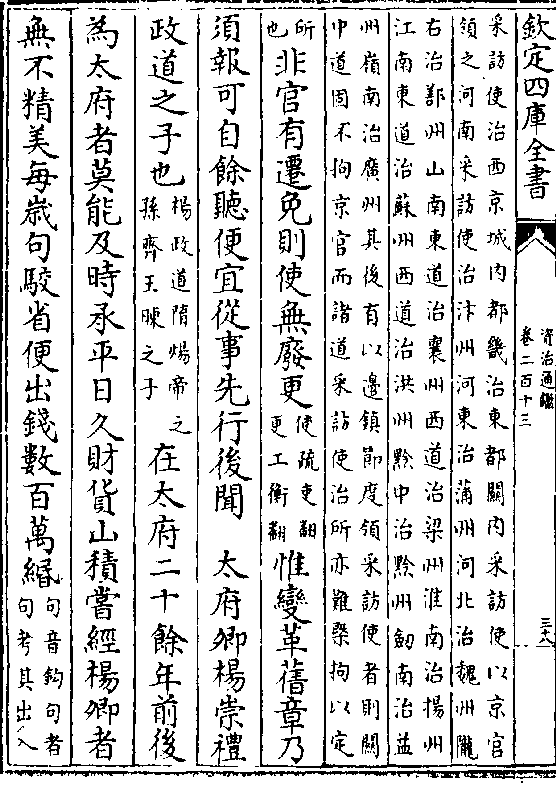 欽定四庫全書
資治通鑑
卷二百十三
采訪使治西京城内都畿治東都關内采訪使以京官
領之河南采訪使治汴州河東治蒲州河北治魏州隴
右治鄯州山南東道治襄州西道治梁州淮南治揚州
江南東道治蘇州西道治洪州黔中治黔州劍南治益
州嶺南治廣州其後有以邊鎮節度領采訪使者則關
中道固不拘京官而諸道采訪使治所亦難槩拘以定
所也非官有遷免則使無廢更使疏吏翻更工衡翻惟變革舊章乃
須報可自餘聽便宜從事先行後聞 太府卿楊崇禮
政道之子也楊政道隋煬帝之孫齊王暕之子在太府二十餘年前後
為太府者莫能及時承平日久財貨山積嘗經楊卿者
無不精美每歲句駮省便出錢數百萬緡句音鈎句者句考其出入